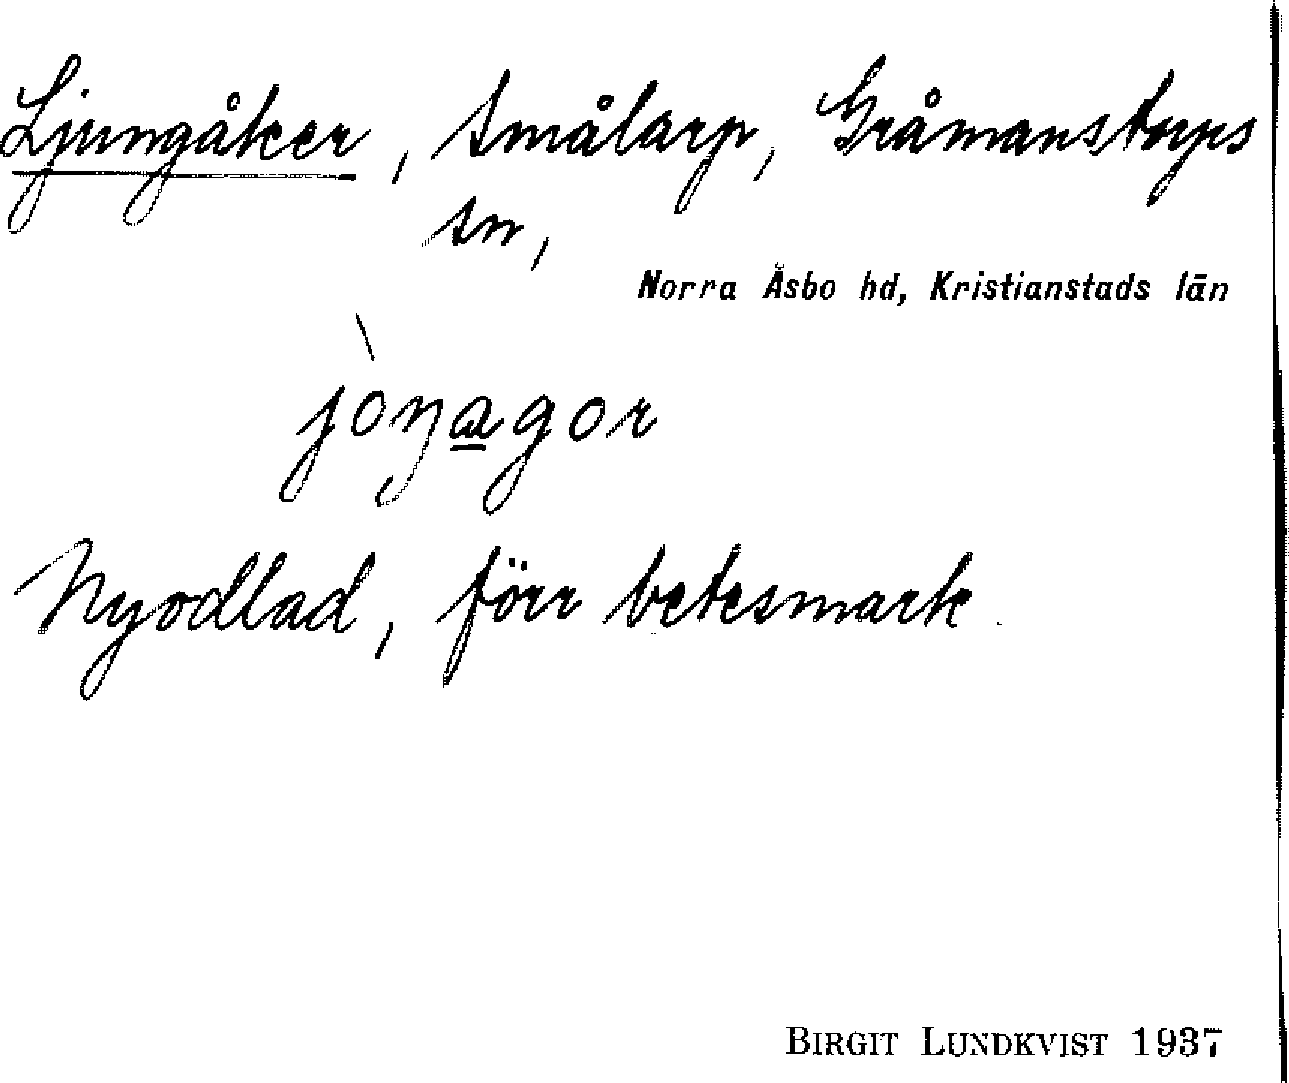 Ljungåker, Smålarp, Gråmanstorps
sn,
Norra Åsbo hd, Kristianstads län
jòŋa̲gor
Nyodlad, förr betesmark.
BIRGIT LUNDKVIST 1937